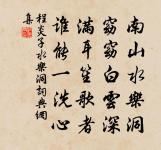 南山水樂洞
窈窕白雲深
滿耳笙歌者
誰能一洗心
程炎子水樂洞詞典網
集